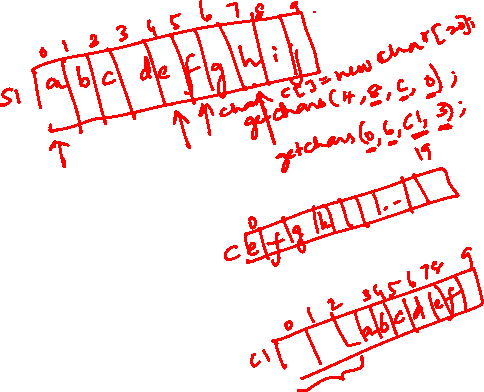 0 1 2 3 4 5 6 7 8 9
S1 a b c d e f g h i j
char c[] = new char[20];
getchars(4, 8, c, 0);
getchars(0, 6, c1, 3);
0 19
C e f g h | . .
0 1 2 3 4 5 6 7 8 9
C1 a b c d e f